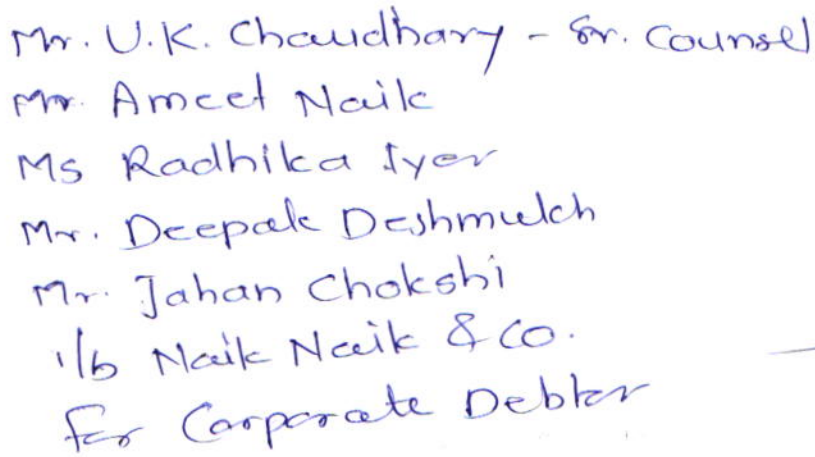 Mr. U.K. Chaudhary - Sr. Counsel
Mr. Ameet Naik
Ms Radhika Iyer
Mr. Deepak Deshmukh
Mr. Jahan Chokshi
i/b Naik Naik & Co.
for Corporate Debtor